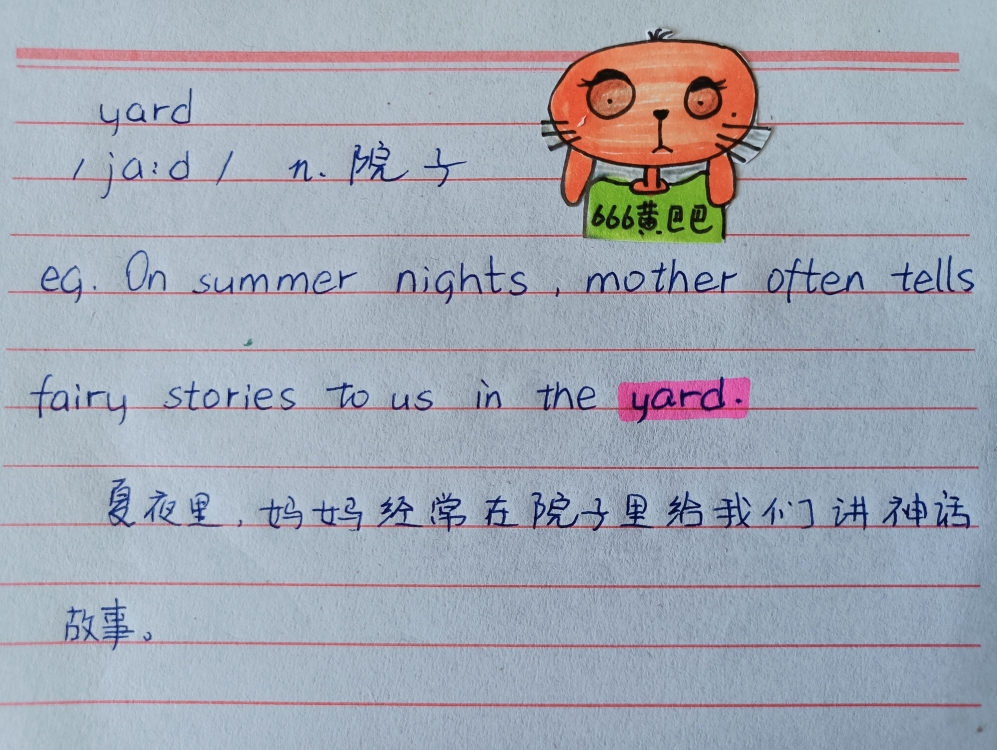 yard
/ja:d/ n. 院子
666黄巴巴
eg. On summer nights, mother often tells
fairy stories to us in the yard.
夏夜里,妈妈经常在院子里给我们讲神话
故事。